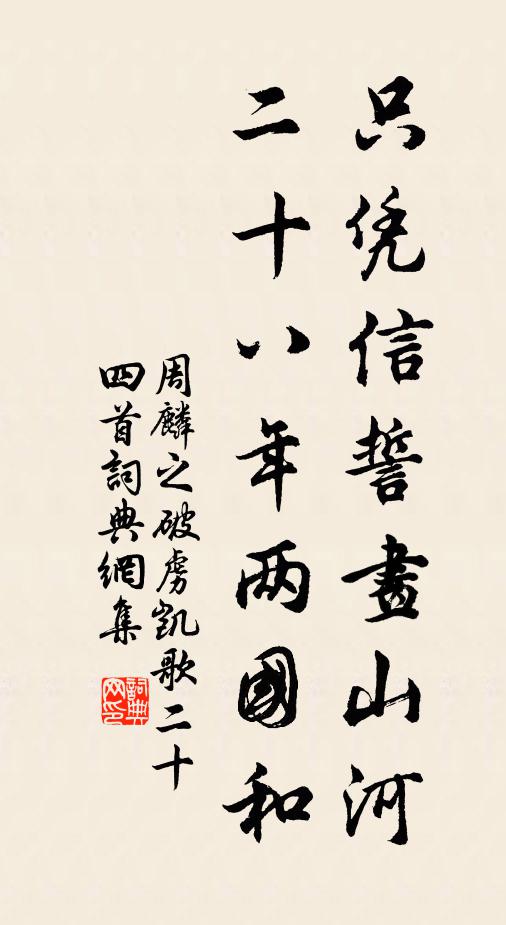 只凭信誓畫山河
二十八年两國和
周麟之破虏凯歌二十
四首詞典網集
詞典网印